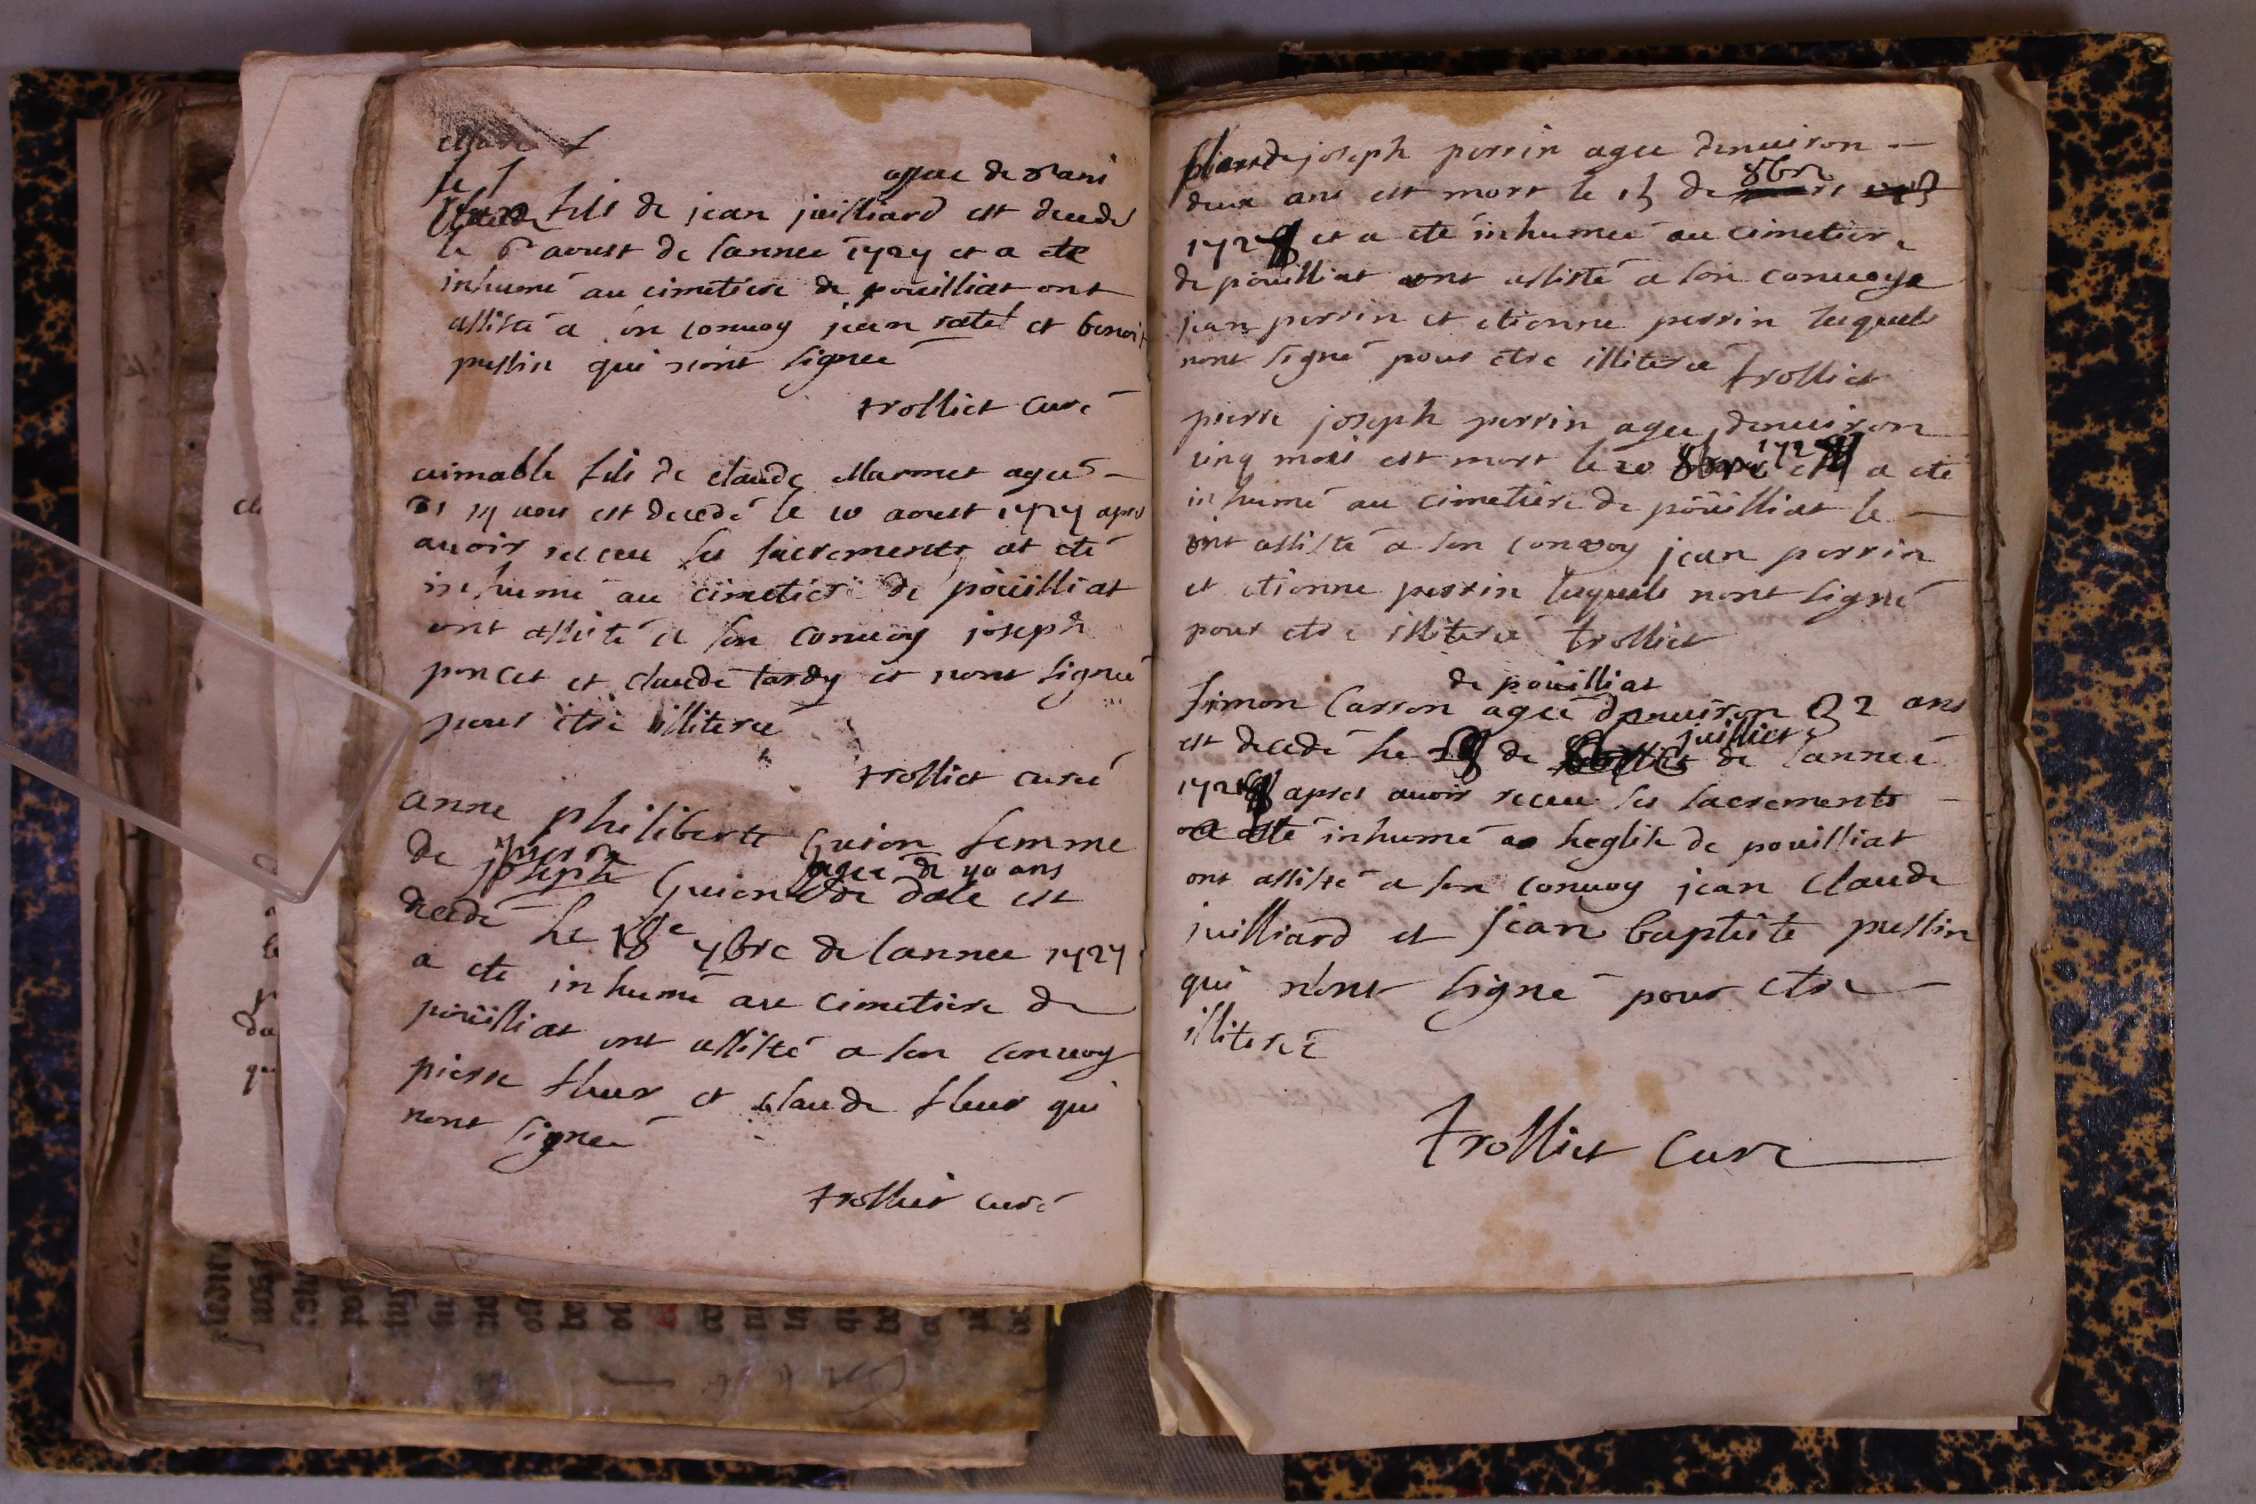 le
agée de 8 ans
Claude fils de jean juilliard est decedé
le 6e aoust de lannee 1727 et a ete
inhumé au cimetiere de pouilliat ont
assisté a son convoy jean ratel et benoit
pestin qui nont signeé
trolliet Curé
aimable fils de claude Marmet ageé
est decedé le 10 aoust 1727 apres
avoir receu les sacrements at eté
inhumé au cimetiere de pöüilliat
ont assisté a son convoy joseph
poncet et claude tardy et nont signeé
pour etre illitereé
trolliet cureé
anne philiberte Guion femme
agee de 40 ans
de joseph Guion de dole est
decedé le 18e 7bre de lannee 1727
a ete inhumé au cimetiere de
poüilliat ont assisté a son convoy
pierre fleur et claude fleur qui
nont signeé
trolliet curé
Claude joseph perrin ageé denuiron
8bre
deux ans est mort le 15 de
172 et a eté inhumeé au cimetiere
de poüilliat ont assisté a son convoye
jean perrin et etienne perrin lesquels
nont signé pour etre illitereé trolliet
pierre joseph perrin ageé denuiron
172
cinq mois est mort le 20 8bre et a eté
inhumé au cimetiere de pöüilliat le
ont assisté a son convoy jean perrin
et etienne perrin lesquels nont signé
pour etre illitereé trolliet
de poüilliat
simon Carron ageé denuiron 32 ans
juilliet
est decedé le de de lanneé
172 apres auoir receu les sacrements
a eté inhumé a leglise de pouilliat
ont assisté a son convoy jean Claude
juilliard et jean baptiste pestin
qui nont signé pour etre
illitereé
trolliet Curé